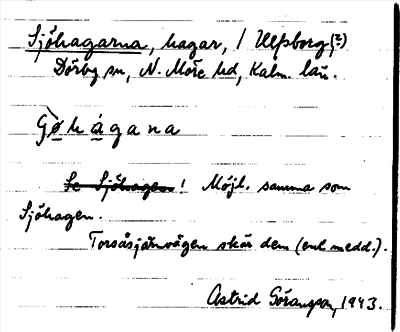 Sjöhagarna, hagar, / Ulfsborg (2)
Dörby sn, N. Möre hd, Kalm. län.
Gö̀hágana
Se Sjöhagen! Möjl. samma som
Sjöhagen.
Torsåsjärnvägen skär dem (enl. medd.).
Astrid Göransson, 1943.